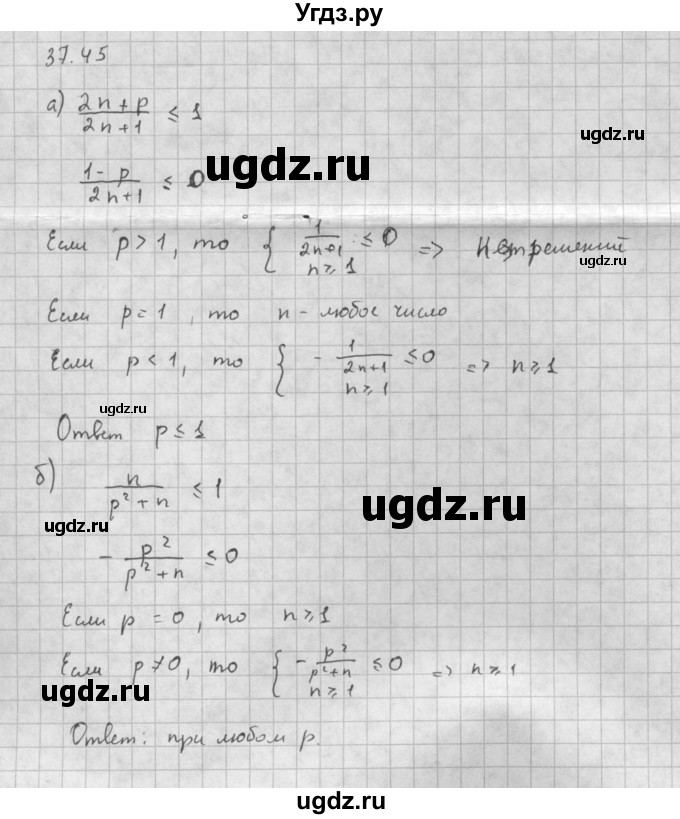 Угдз.ру
37.45
а) (2n + p)/(2n + 1) ≤ 1
ugdz.ru
ugdz.ru
(1 - p)/(2n + 1) ≤ 0
Если p > 1, то { 1/(2n+1) ≤ 0 => Нет решений
n ≥ 1
ugdz.ru
Если p = 1, то n - любое число
Если p < 1, то { - 1/(2n+1) ≤ 0 => n ≥ 1
n ≥ 1
ugdz.ru
Ответ p ≤ 1
б) n/(p² + n) ≤ 1
ugdz.ru
ugdz.ru
- p²/(p² + n) ≤ 0
Если p = 0, то n ≥ 1
Если p ≠ 0, то { - p²/(p²+n) ≤ 0 => n ≥ 1
n ≥ 1
ugdz.ru
ugdz.ru
Ответ: при любом p.
ugdz.ru